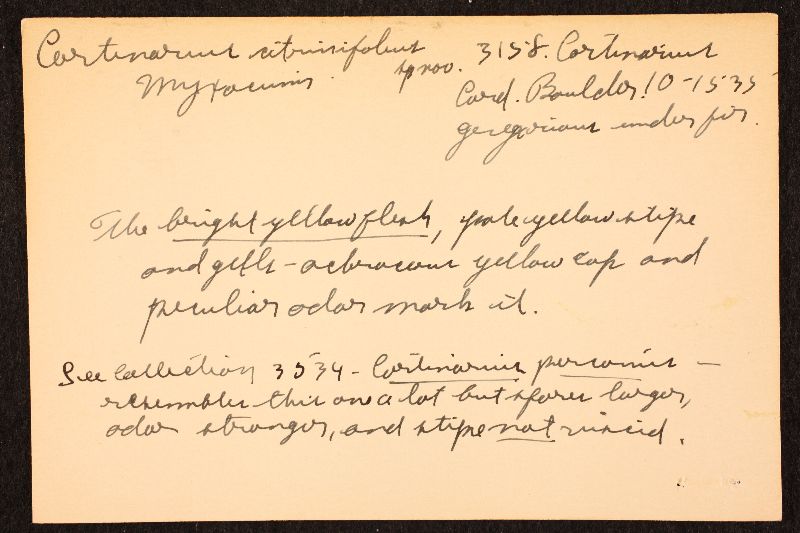 Cortinarius citrinifolius
sp nov.
Myxacium
3158. Cortinarius
Card. Boulder 10-15-35
gregarious under fir.
The bright yellow flesh, pale yellow stipe
and gills - ochraceous yellow cap and
peculiar odor mark it.
See collection 3534 - Cortinarius percomis -
resembles this one a lot but spores larger,
odor stronger, and stipe not viscid.